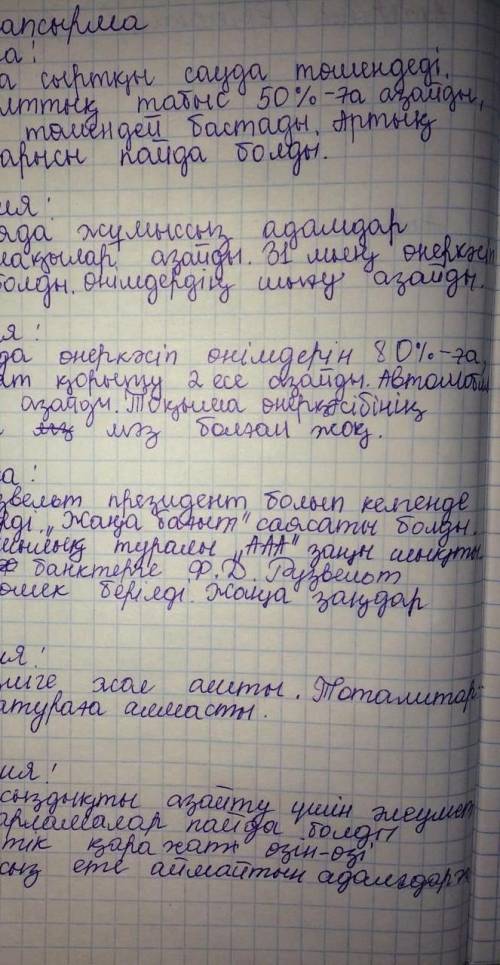 апсырма
а:
а сыртқы сауда төмендеді.
лттық табыс 50%-ға азайды,
төмендей бастады. Артық
арысы пайда болды.
ия:
яда жұмыссыз адамдар
азайды. 31 мың өнеркәсіп
болды. Өнімдердің шығу азайды.
я:
да өнеркәсіп өнімдерін 80%-ға,
ат қорыту 2 есе азайды. Автомобил
азайды. Тоқыма өнеркәсібінің
мәз болған жоқ.
а:
звельт президент болып келгенде
рді. „Жаңа бағыт" саясаты болды.
шылық туралы „ААА" заңы шықты.
банктерге Ф. Д. Рузвельт
өмек берілді. Жаңа заңдар
ия:
змге жол ашты. Тоталитар-
атураға алмасты.
ия:
сыздықты азайту үшін әлеумет
арламалар пайда болды
тік қаражат өзін-өзі
сыз ете алмайтын адамдарж